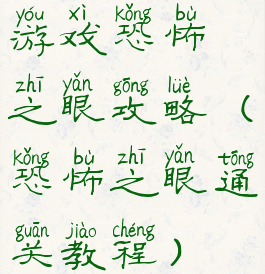 yóu xì kǒng bù
游戏恐怖
zhī yǎn gōng lüè
之眼攻略（
kǒng bù zhī yǎn tōng
恐怖之眼通
guān jiào chéng
关教程）